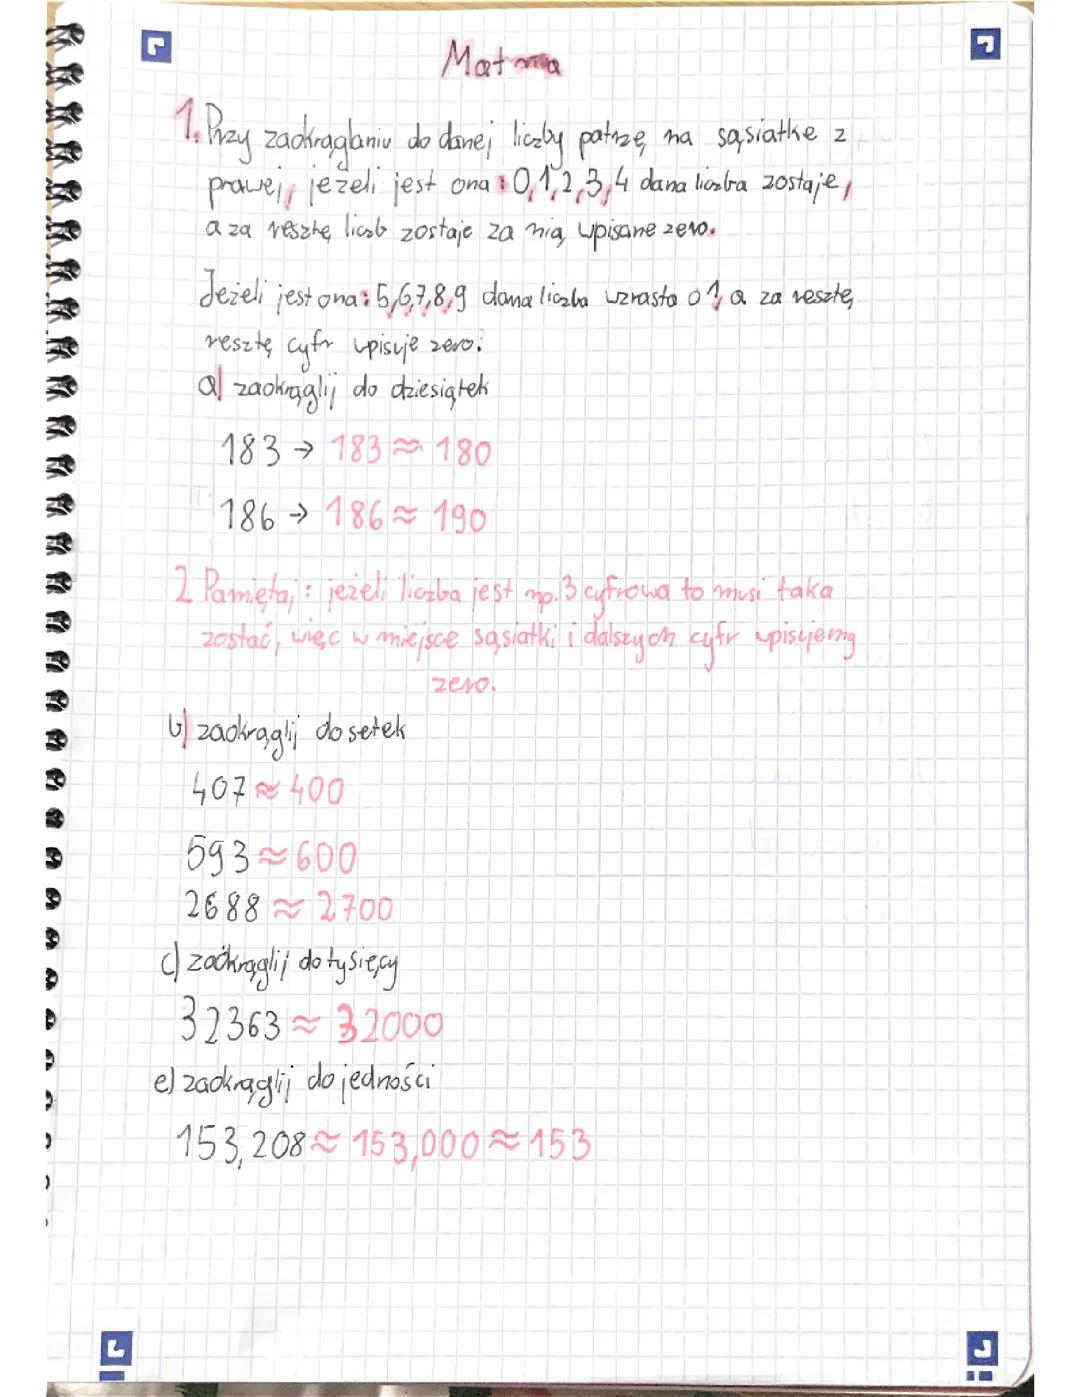 Matma
1. Przy zaokrąglaniu do danej liczby patrzę na sąsiatkę z
prawej, jeżeli jest ona: 0,1,2,3,4 dana liczba zostaje,
a za resztę liczb zostaje za nią wpisane zero.
Jeżeli jest ona: 5,6,7,8,9 dana liczba wzrasta o 1, a za resztę,
resztę cyfr wpisuje zero.
a) zaokrąglij do dziesiątek
183 → 183 ≈ 180
186 → 186 ≈ 190
2 Pamiętaj: jeżeli liczba jest np. 3 cyfrowa to musi taka
zostać, więc w miejsce sąsiatki i dalszych cyfr wpisujemy
zero.
b) zaokrąglij do setek
407 ≈ 400
593 ≈ 600
2688 ≈ 2700
c) zaokrąglij do tysięcy
32363 ≈ 32000
e) zaokrąglij do jedności
153,208 ≈ 153,000 ≈ 153